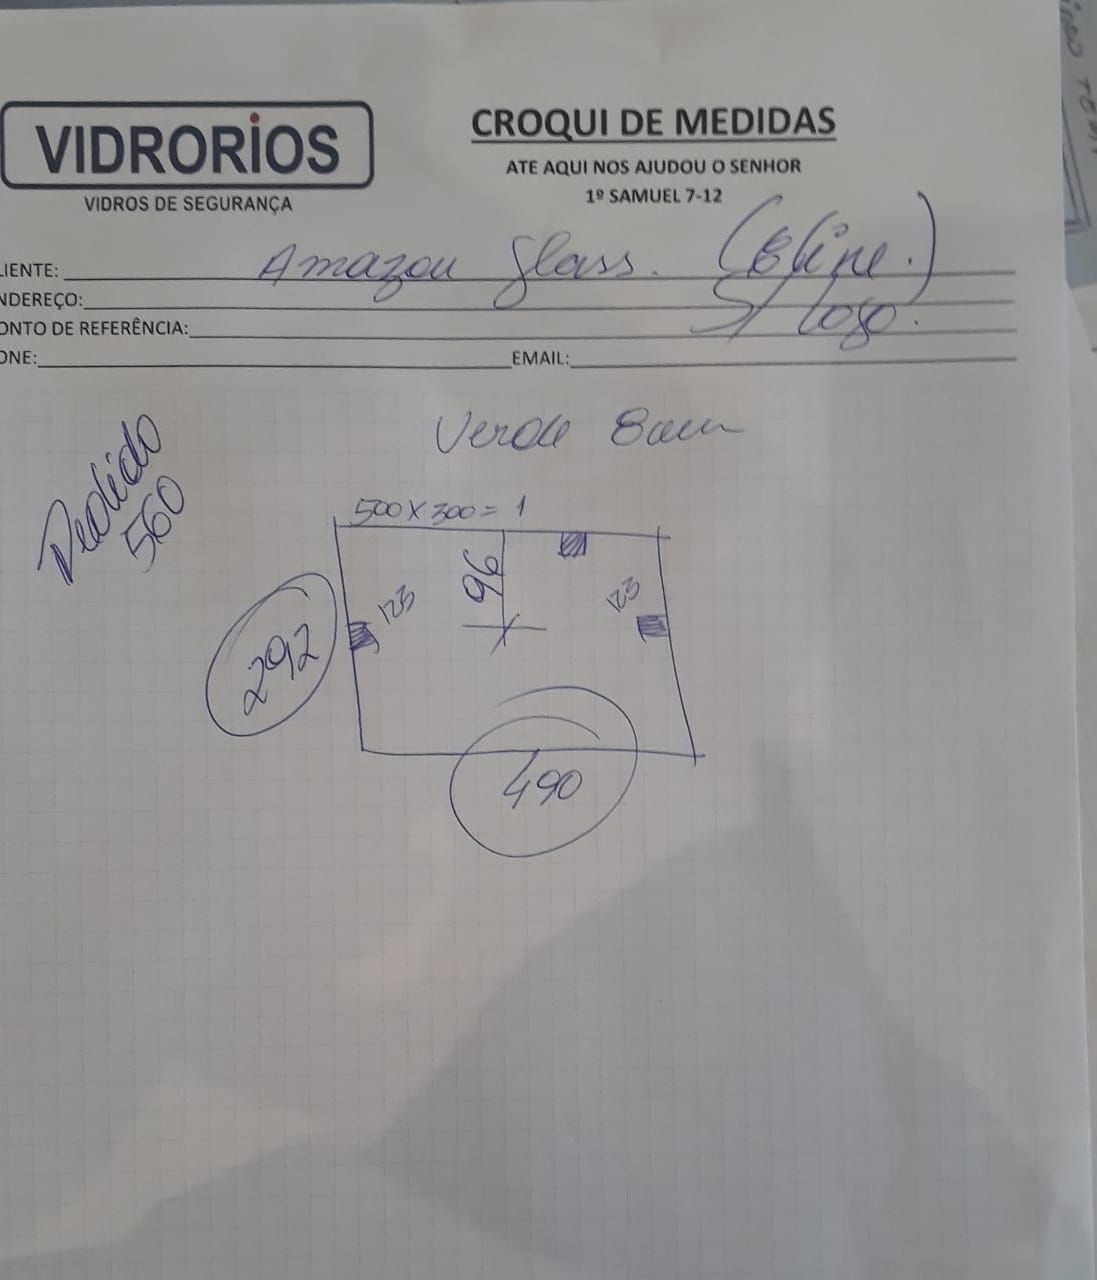 VIDRORIOS
VIDROS DE SEGURANÇA
CROQUI DE MEDIDAS
ATE AQUI NOS AJUDOU O SENHOR
1º SAMUEL 7-12
LIENTE: Amazon Glass. (Eline.)
NDEREÇO:
S/ logo.
ONTO DE REFERÊNCIA:
ONE: EMAIL:
Verde 8mm
Pedido
560
500 X 300 = 1
96
123
123
292
490